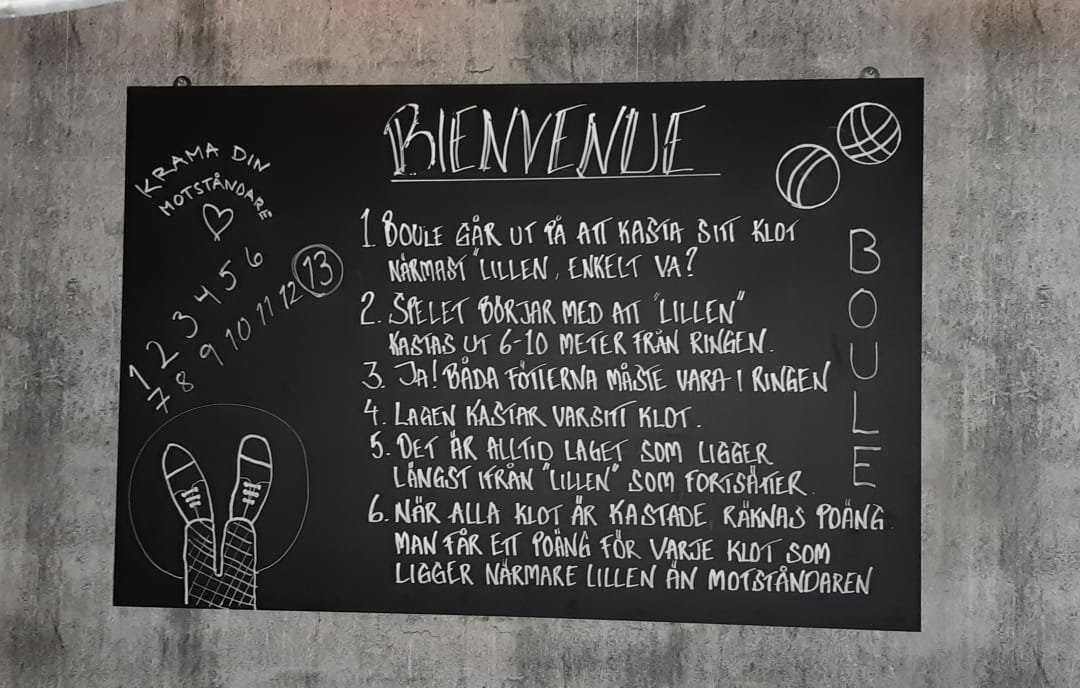 BIENVENUE
KRAMA DIN
MOTSTÅNDARE
1 2 3 4 5 6
7 8 9 10 11 12 13
1. BOULE GÅR UT PÅ ATT KASTA SITT KLOT
NÄRMAST "LILLEN, ENKELT VA?
2. SPELET BÖRJAR MED ATT "LILLEN"
KASTAS UT 6-10 METER FRÅN RINGEN.
3. JA! BÅDA FÖTTERNA MÅSTE VARA I RINGEN
4. LAGEN KASTAR VARSITT KLOT.
5. DET ÄR ALLTID LAGET SOM LIGGER
LÄNGST IFRÅN "LILLEN" SOM FORTSÄTTER.
6. NÄR ALLA KLOT ÄR KASTADE RÄKNAS POÄNG
MAN FÅR ETT POÄNG FÖR VARJE KLOT SOM
LIGGER NÄRMARE LILLEN ÄN MOTSTÅNDAREN
BOULE